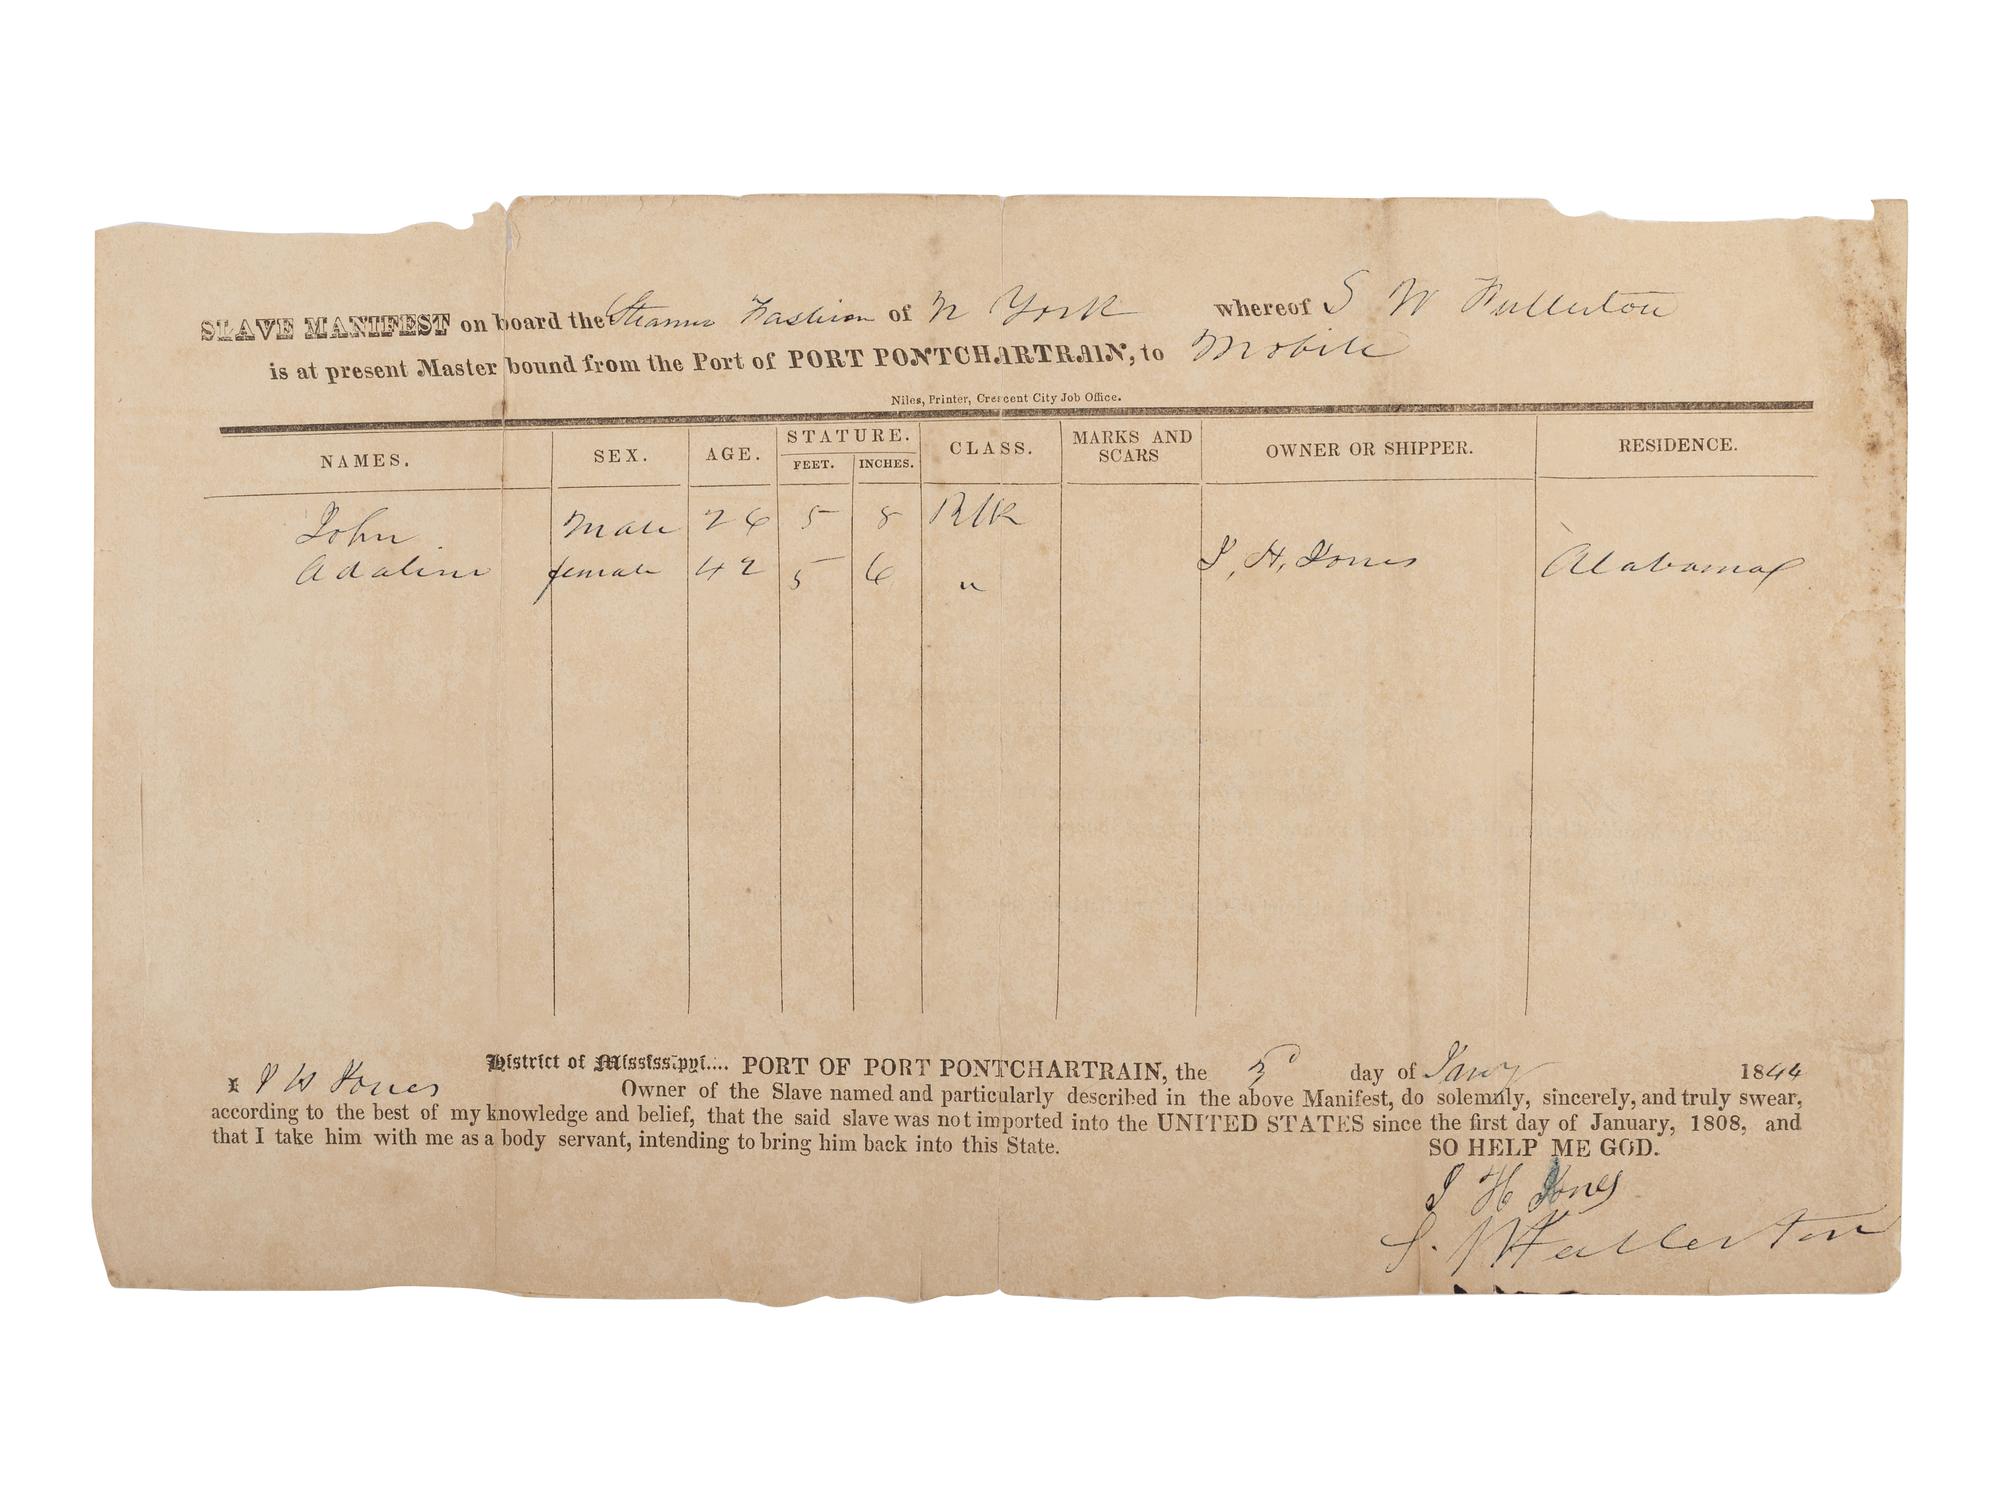 SLAVE MANIFEST on board the Steamer Fashion of N York whereof S W Fullerton
is at present Master bound from the Port of PORT PONTCHARTRAIN, to Mobile
Niles, Printer, Crescent City Job Office.
NAMES. SEX. AGE. STATURE. FEET. INCHES. CLASS. MARKS AND SCARS OWNER OR SHIPPER. RESIDENCE.
John Male 26 5 8 Blk
Adaline female 42 5 6 " J. H. Jones Alabama
District of Mississippi.... PORT OF PORT PONTCHARTRAIN, the 3d day of Jany 1844
I J H Jones Owner of the Slave named and particularly described in the above Manifest, do solemnly, sincerely, and truly swear,
according to the best of my knowledge and belief, that the said slave was not imported into the UNITED STATES since the first day of January, 1808, and
that I take him with me as a body servant, intending to bring him back into this State.
SO HELP ME GOD.
J H Jones
S. W Fullerton